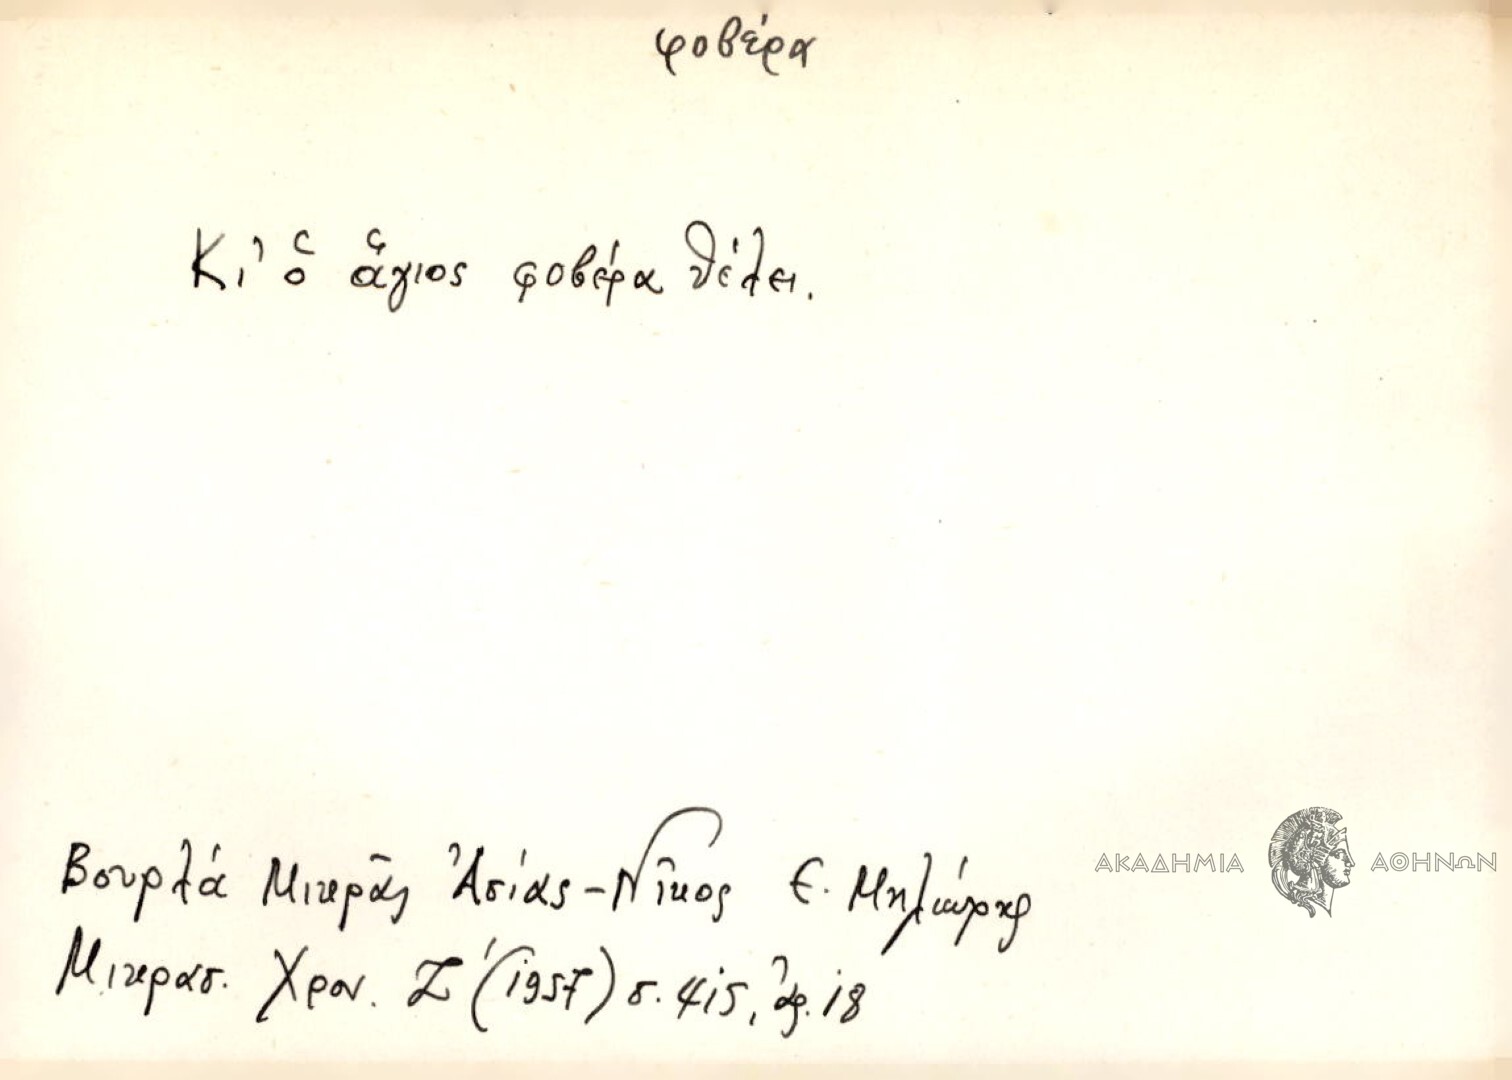 φοβέρα
Κι' ὁ ἅγιος φοβέρα θέλει.
Βουρλά Μικρᾶς Ἀσίας - Νῖκος Ε. Μηλιώρης
ΑΚΑΔΗΜΙΑ ΑΘΗΝΩΝ
Μικρασ. Χρον. Ζ' (1957) σ. 415, ἀρ. 18